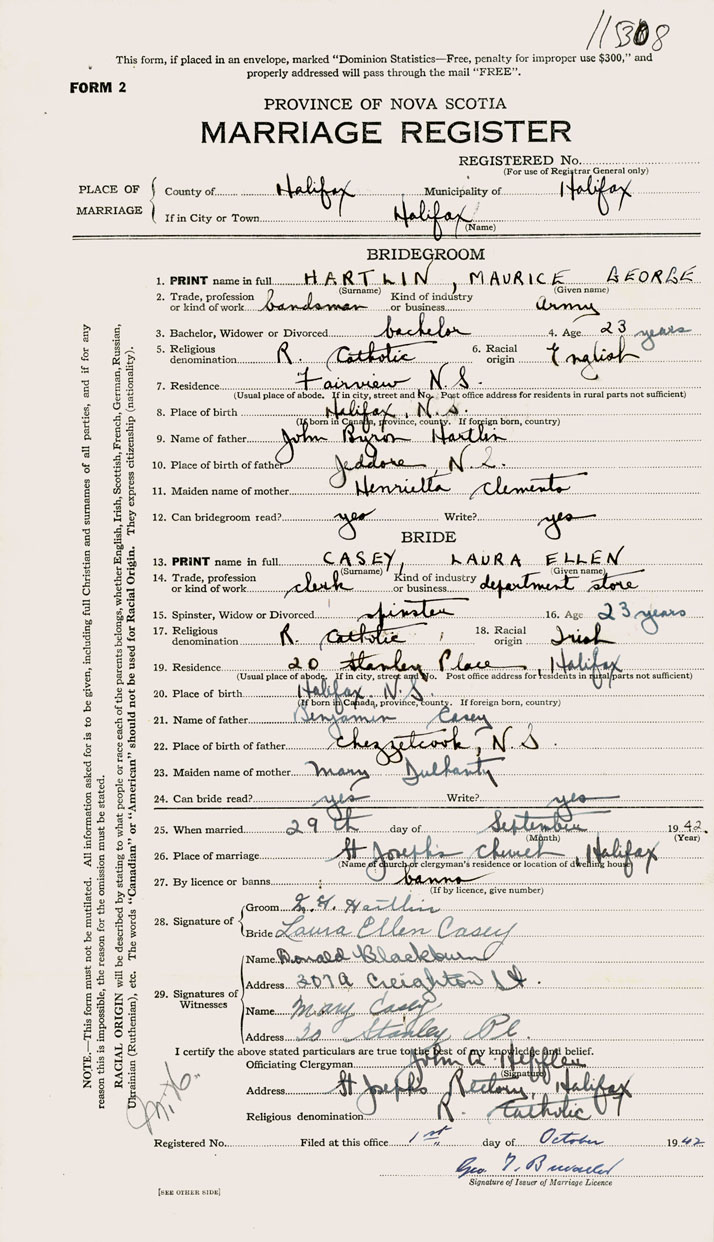 11308
This form, if placed in an envelope, marked “Dominion Statistics—Free, penalty for improper use $300,” and
properly addressed will pass through the mail “FREE”.
FORM 2
PROVINCE OF NOVA SCOTIA
MARRIAGE REGISTER
REGISTERED No.
(For use of Registrar General only)
PLACE OF MARRIAGE
County of Halifax Municipality of Halifax
If in City or Town Halifax
(Name)
BRIDEGROOM
1. PRINT name in full HARTLIN, MAURICE GEORGE
(Surname) (Given name)
2. Trade, profession or kind of work bandsman Kind of industry or business Army
3. Bachelor, Widower or Divorced bachelor 4. Age 23 years
5. Religious denomination R. Catholic 6. Racial origin English
7. Residence Fairview N.S.
(Usual place of abode. If in city, street and No. Post office address for residents in rural parts not sufficient)
8. Place of birth Halifax, N.S.
(If born in Canada, province, county. If foreign born, country)
9. Name of father John Byron Hartlin
10. Place of birth of father Jeddore, N.S.
11. Maiden name of mother Henrietta Clements
12. Can bridegroom read? yes Write? yes
BRIDE
13. PRINT name in full CASEY, LAURA ELLEN
(Surname) (Given name)
14. Trade, profession or kind of work clerk Kind of industry or business department store
15. Spinster, Widow or Divorced spinster 16. Age 23 years
17. Religious denomination R. Catholic 18. Racial origin Irish
19. Residence 20 Stanley Place, Halifax
(Usual place of abode. If in city, street and No. Post office address for residents in rural parts not sufficient)
20. Place of birth Halifax, N.S.
(If born in Canada, province, county. If foreign born, country)
21. Name of father Benjamin Casey
22. Place of birth of father Chezzetcook, N.S.
23. Maiden name of mother Mary Dulhanty
24. Can bride read? yes Write? yes
25. When married 29th day of September 1942.
(Month) (Year)
26. Place of marriage St Joseph's Church, Halifax
(Name of church or clergyman's residence or location of dwelling house)
27. By licence or banns banns
(If by licence, give number)
28. Signature of
Groom Hartlin
Bride Laura Ellen Casey
29. Signatures of Witnesses
Name Donald Blackburn
Address 307A Creighton St
Name Mary Casey
Address 20 Stanley Pl.
I certify the above stated particulars are true to the best of my knowledge and belief.
Officiating Clergyman John A. Hefflen
(Signature)
Address St Joseph's Rectory, Halifax
Religious denomination R. Catholic
Registered No. Filed at this office 1st day of October 1942
Geo
Signature of Issuer of Marriage Licence
[SEE OTHER SIDE]
NOTE.—This form must not be mutilated. All information asked for is to be given, including full Christian and surnames of all parties, and if for any
reason this is impossible, the reason for the omission must be stated.
RACIAL ORIGIN will be described by stating to what people or race each of the parents belongs, whether English, Irish, Scottish, French, German, Russian,
Ukrainian (Ruthenian), etc. The words “Canadian” or “American” should not be used for Racial Origin. They express citizenship (nationality).